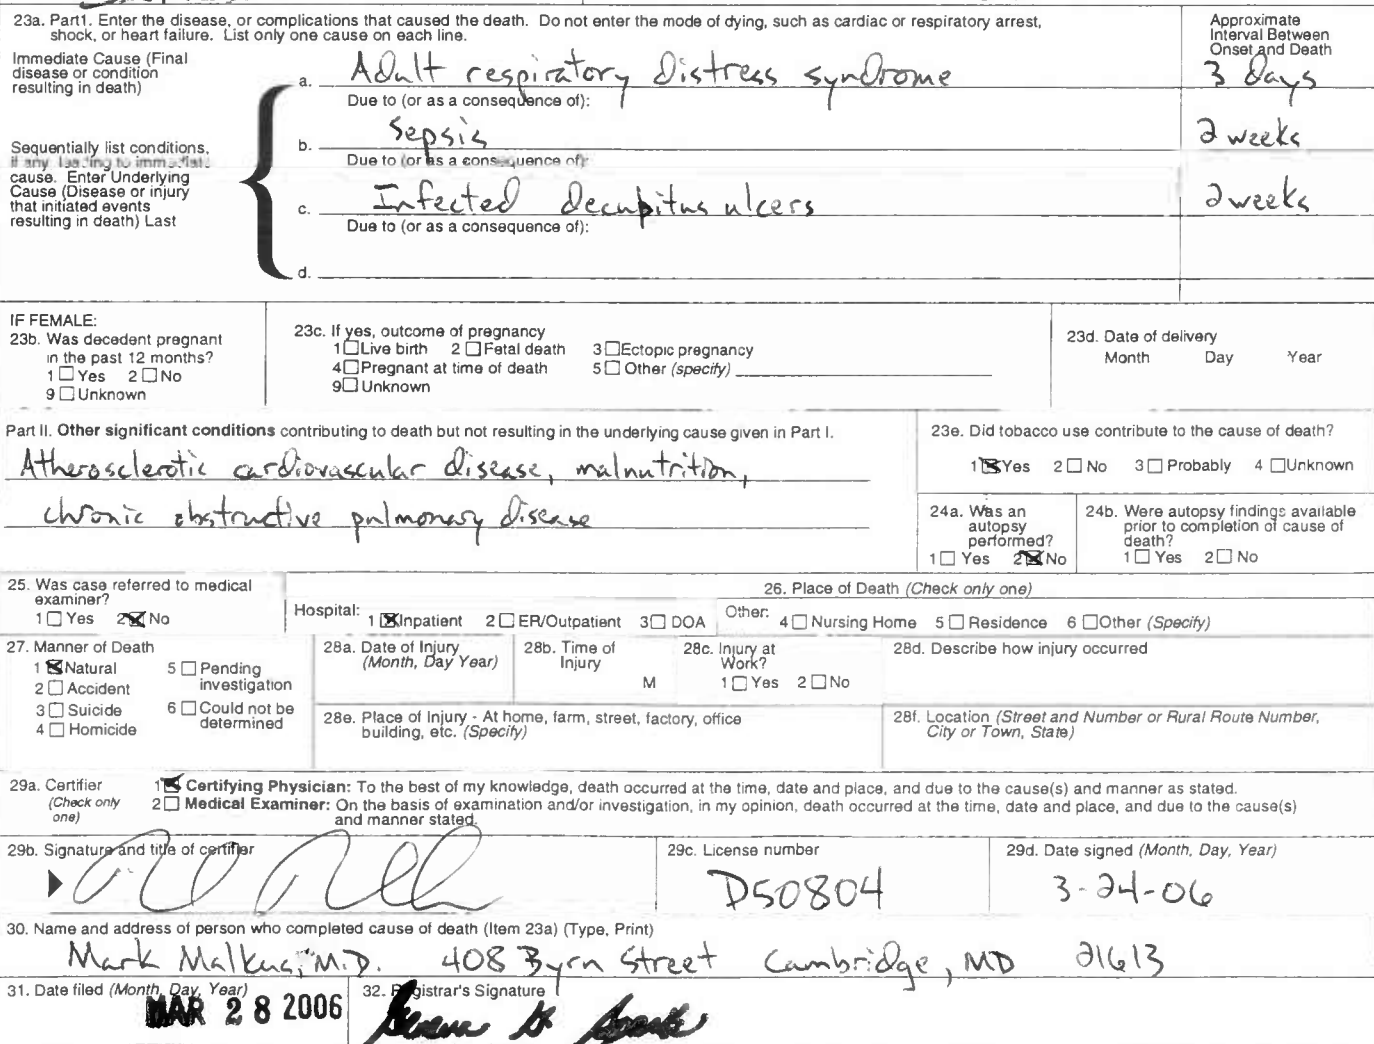 23a. Part1. Enter the disease, or complications that caused the death. Do not enter the mode of dying, such as cardiac or respiratory arrest,
shock, or heart failure. List only one cause on each line.
Approximate
Interval Between
Onset and Death
Immediate Cause (Final
disease or condition
resulting in death)
a. Adult respiratory distress syndrome 3 days
Due to (or as a consequence of):
b. Sepsis 2 weeks
Due to (or as a consequence of):
Sequentially list conditions,
if any leading to immediate
cause. Enter Underlying
Cause (Disease or injury
that initiated events
resulting in death) Last
c. Infected decubitus ulcers 2 weeks
Due to (or as a consequence of):
d.
IF FEMALE:
23b. Was decedent pregnant
in the past 12 months?
1 ☐ Yes 2 ☐ No
9 ☐ Unknown
23c. If yes, outcome of pregnancy
1 ☐ Live birth 2 ☐ Fetal death 3 ☐ Ectopic pregnancy
4 ☐ Pregnant at time of death 5 ☐ Other (specify)
9 ☐ Unknown
23d. Date of delivery
Month Day Year
Part II. Other significant conditions contributing to death but not resulting in the underlying cause given in Part I.
Atherosclerotic cardiovascular disease, malnutrition,
chronic obstructive pulmonary disease
23e. Did tobacco use contribute to the cause of death?
1 ☒ Yes 2 ☐ No 3 ☐ Probably 4 ☐ Unknown
24a. Was an
autopsy
performed?
1 ☐ Yes 2 ☒ No
24b. Were autopsy findings available
prior to completion of cause of
death?
1 ☐ Yes 2 ☐ No
25. Was case referred to medical
examiner?
1 ☐ Yes 2 ☒ No
26. Place of Death (Check only one)
Hospital: 1 ☒ Inpatient 2 ☐ ER/Outpatient 3 ☐ DOA Other: 4 ☐ Nursing Home 5 ☐ Residence 6 ☐ Other (Specify)
27. Manner of Death
1 ☒ Natural 5 ☐ Pending
investigation
2 ☐ Accident
3 ☐ Suicide 6 ☐ Could not be
determined
4 ☐ Homicide
28a. Date of Injury
(Month, Day Year)
28b. Time of
Injury
M
28c. Injury at
Work?
1 ☐ Yes 2 ☐ No
28d. Describe how injury occurred
28e. Place of Injury - At home, farm, street, factory, office
building, etc. (Specify)
28f. Location (Street and Number or Rural Route Number,
City or Town, State)
29a. Certifier
(Check only
one)
1 ☒ Certifying Physician: To the best of my knowledge, death occurred at the time, date and place, and due to the cause(s) and manner as stated.
2 ☐ Medical Examiner: On the basis of examination and/or investigation, in my opinion, death occurred at the time, date and place, and due to the cause(s)
and manner stated.
29b. Signature and title of certifier
29c. License number
D50804
29d. Date signed (Month, Day, Year)
3-24-06
30. Name and address of person who completed cause of death (Item 23a) (Type, Print)
Mark Malkus, M.D. 408 Byrn Street Cambridge, MD 21613
31. Date filed (Month, Day, Year)
MAR 28 2006
32. Registrar's Signature